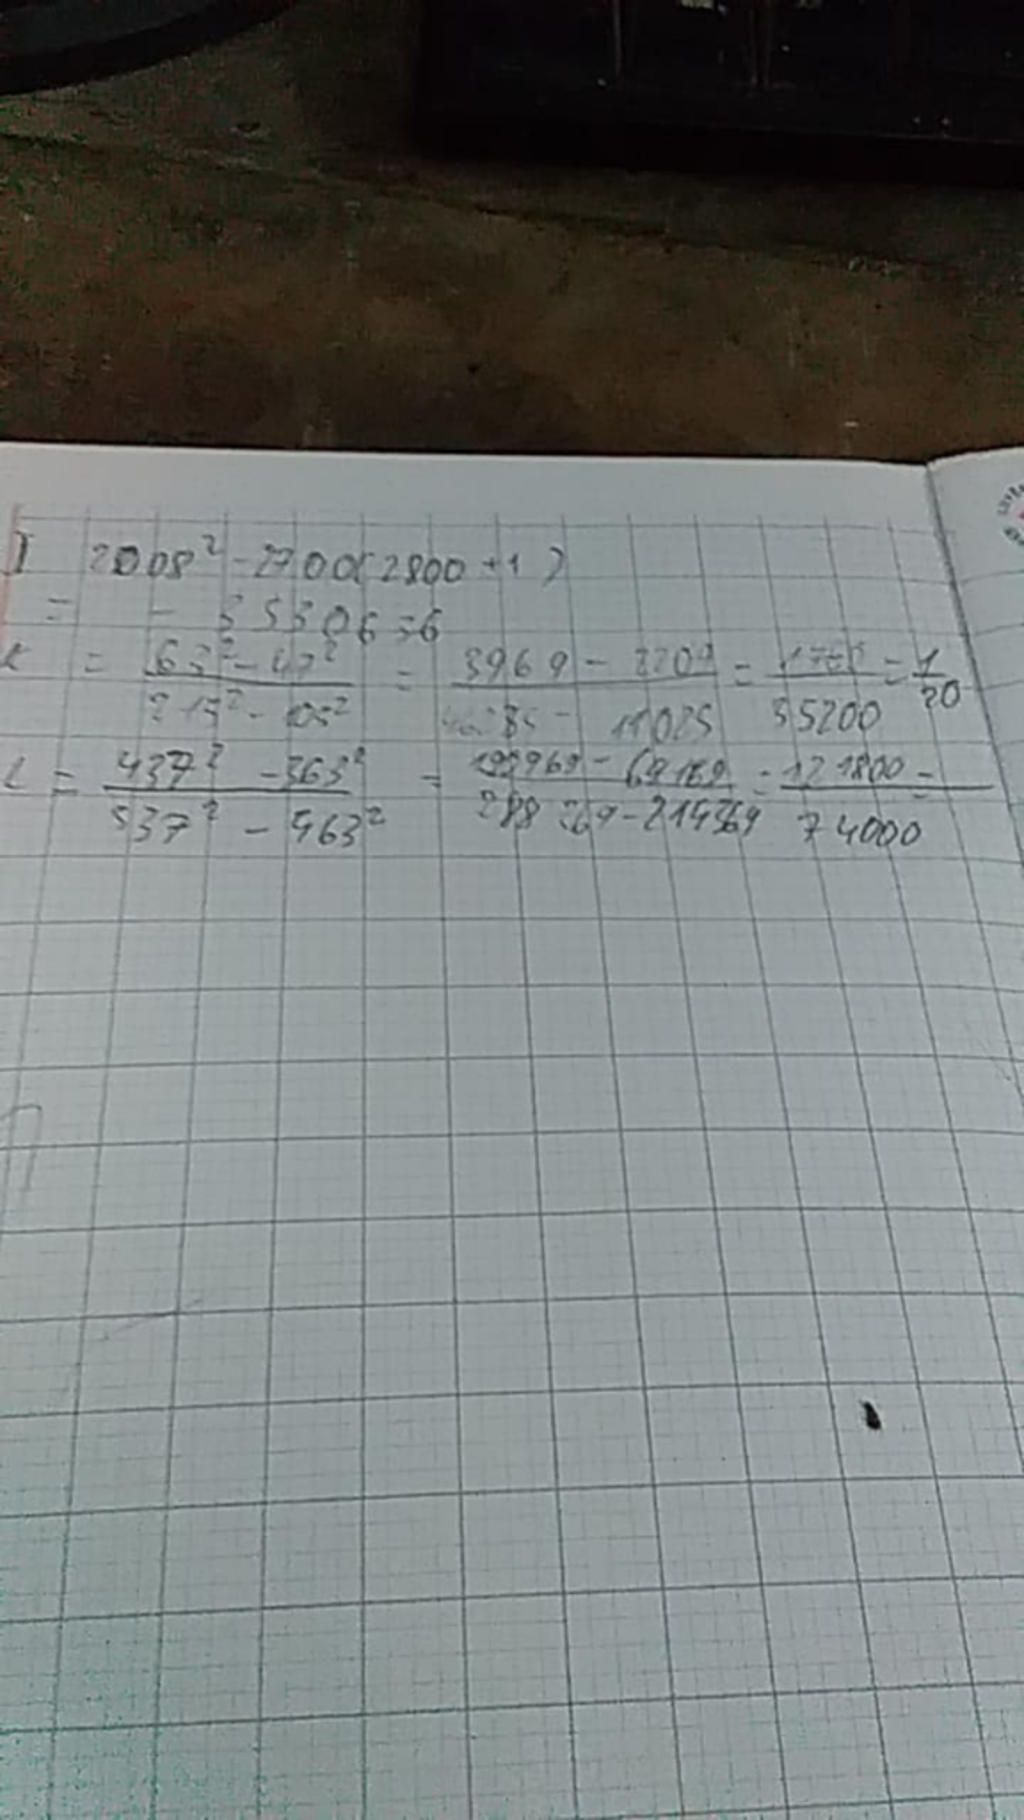 I 2008² - 2700(2800 + 1)
= - 35306 = 6
K = 63² - 47² / 215² - 105² = 3969 - 2209 / - 11025 = 1760 / 35200 = 1/20
L = 437² - 363² / 537² - 463² = 192969 - 69169 / 288369 - 214369 = 121800 / 74000 =